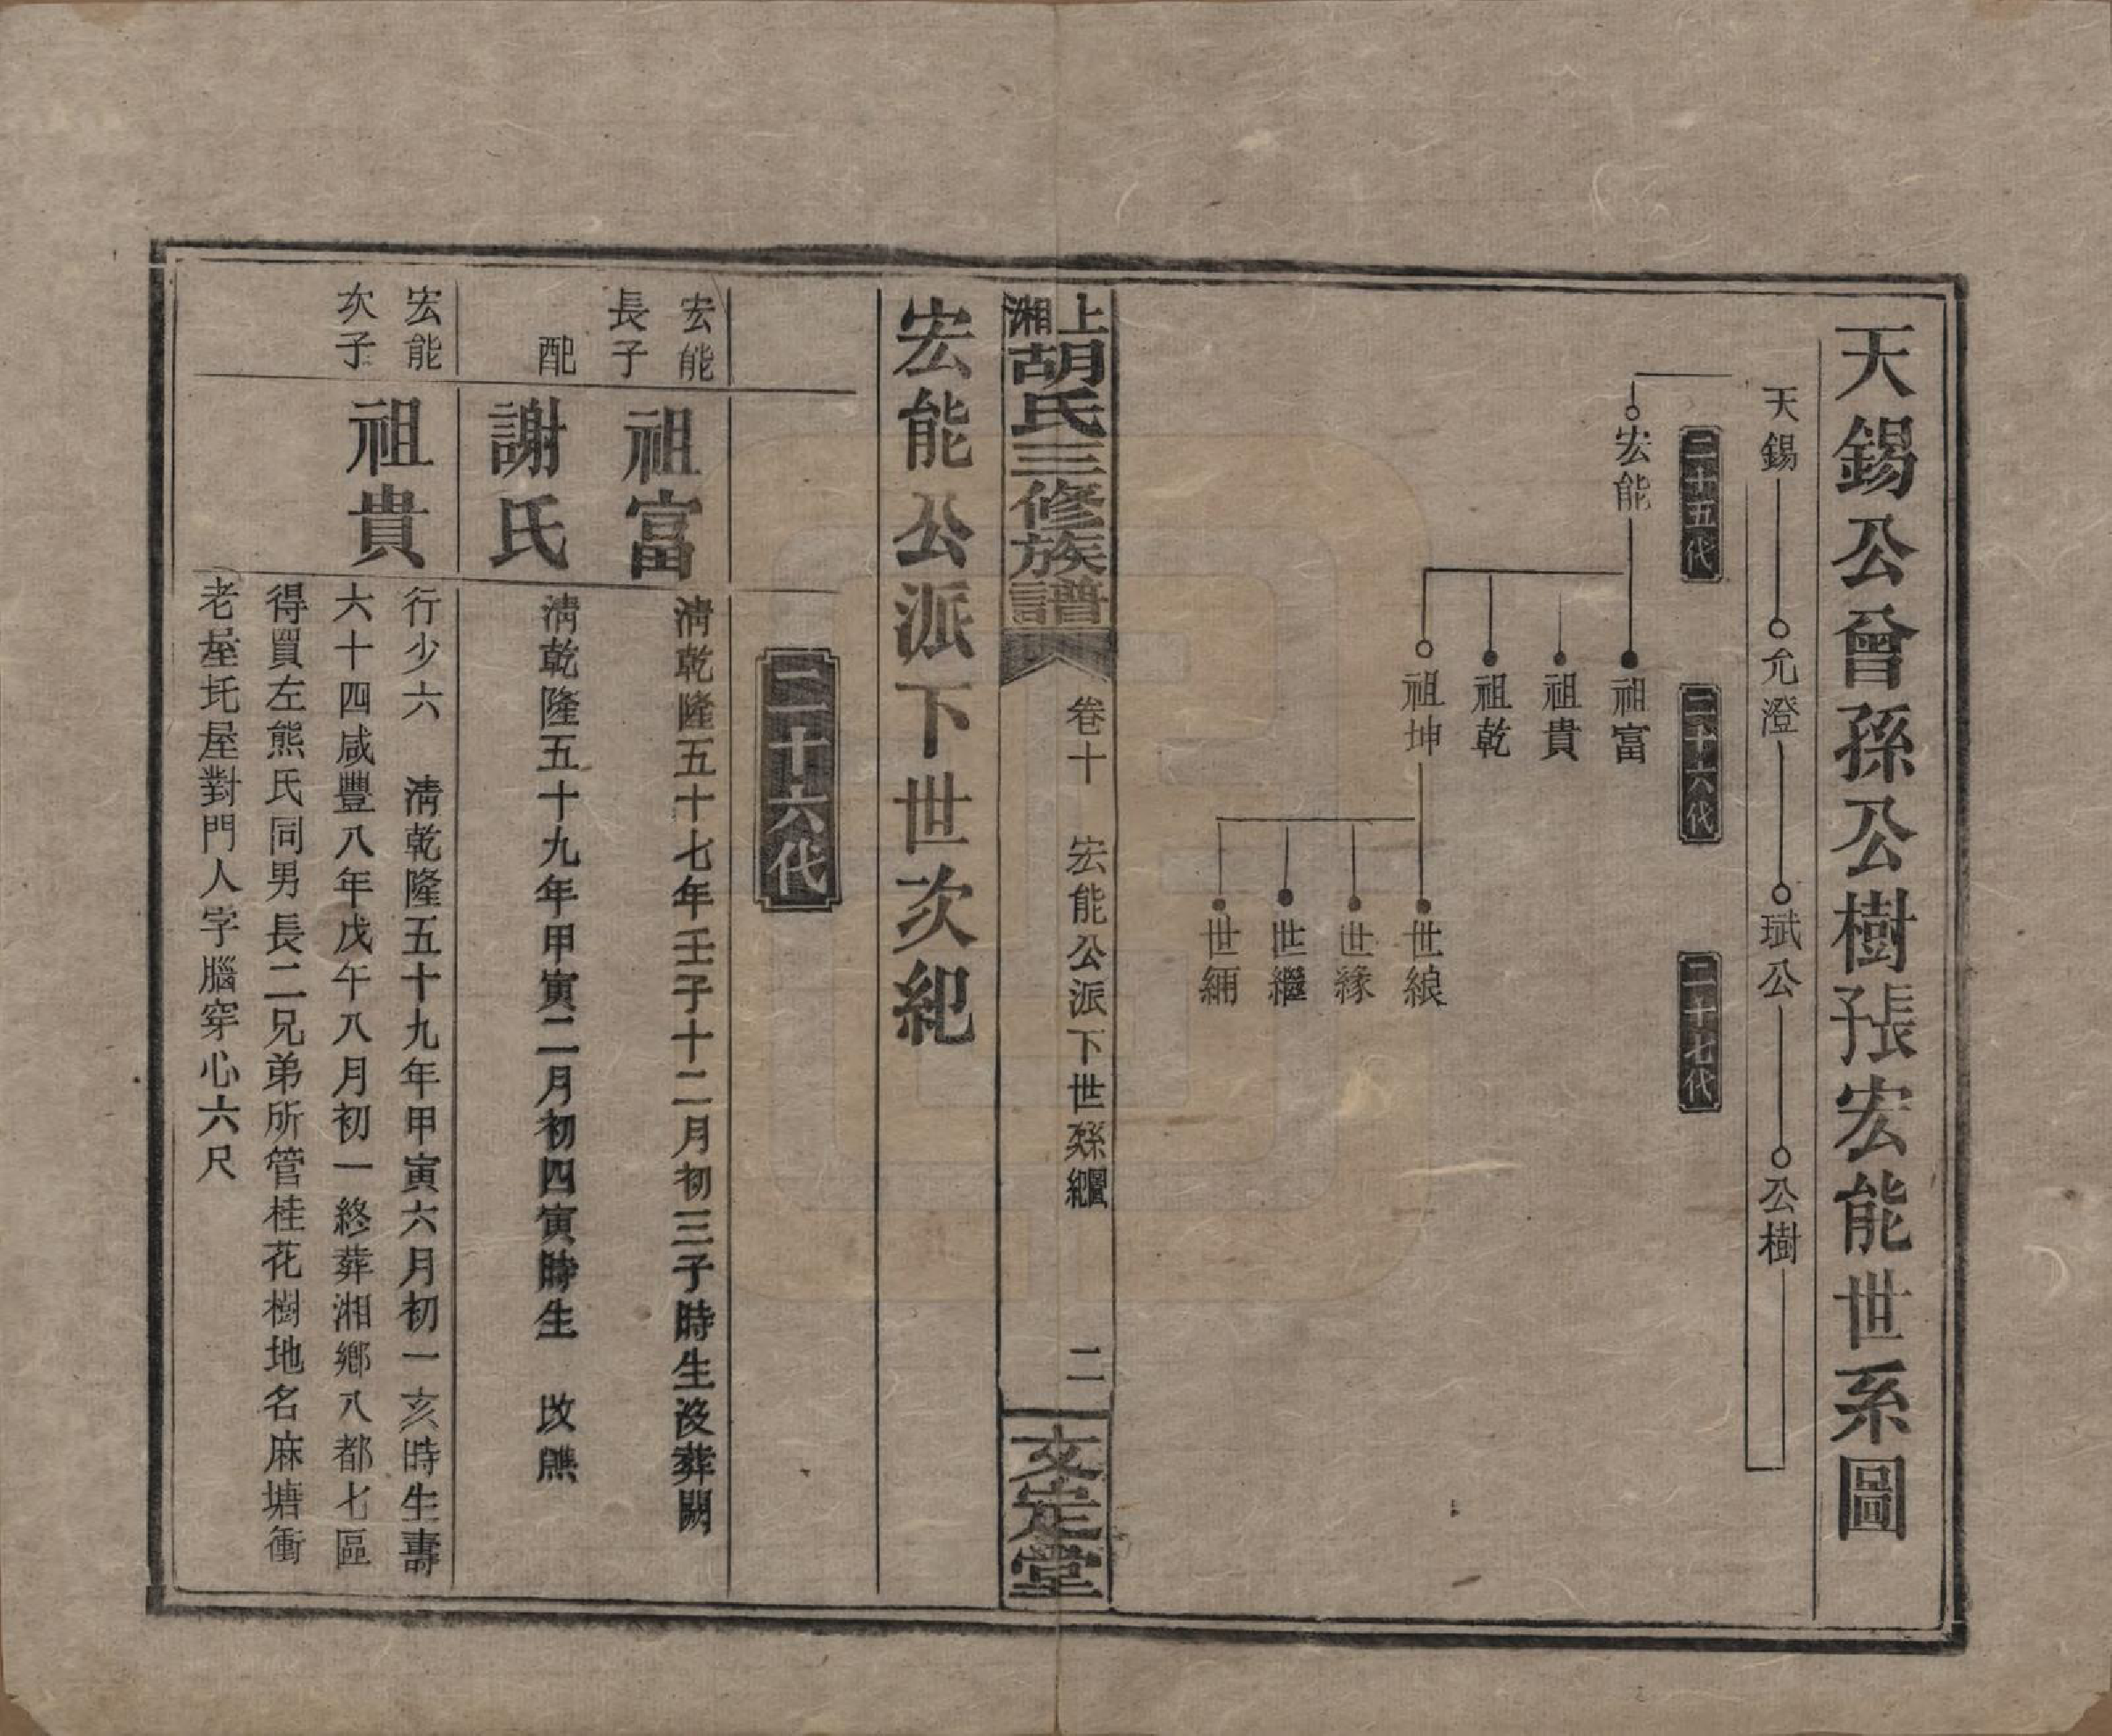 天錫公曾孫公樹張宏能世系圖
天錫 允澄 珷公 公樹
二十五代 二十六代 二十七代
宏能
祖富
祖貴
祖乾
祖坤
世緣
世繼
上湘胡氏三修族譜 卷十 宏能公派下世系 二 文定堂
宏能公派下世次紀
二十六代
宏能長子 祖富 清乾隆五十七年壬子十二月初三子時生沒葬闕
配 謝氏 清乾隆五十九年甲寅二月初四寅時生 改醮
宏能次子 祖貴 行少六 清乾隆五十九年甲寅六月初一亥時生壽
六十四咸豐八年戊午八月初一終葬湘鄉八都七區
得買左熊氏同男長二兄弟所管桂花樹地名麻塘衝
老屋圫屋對門人字腦穿心六尺